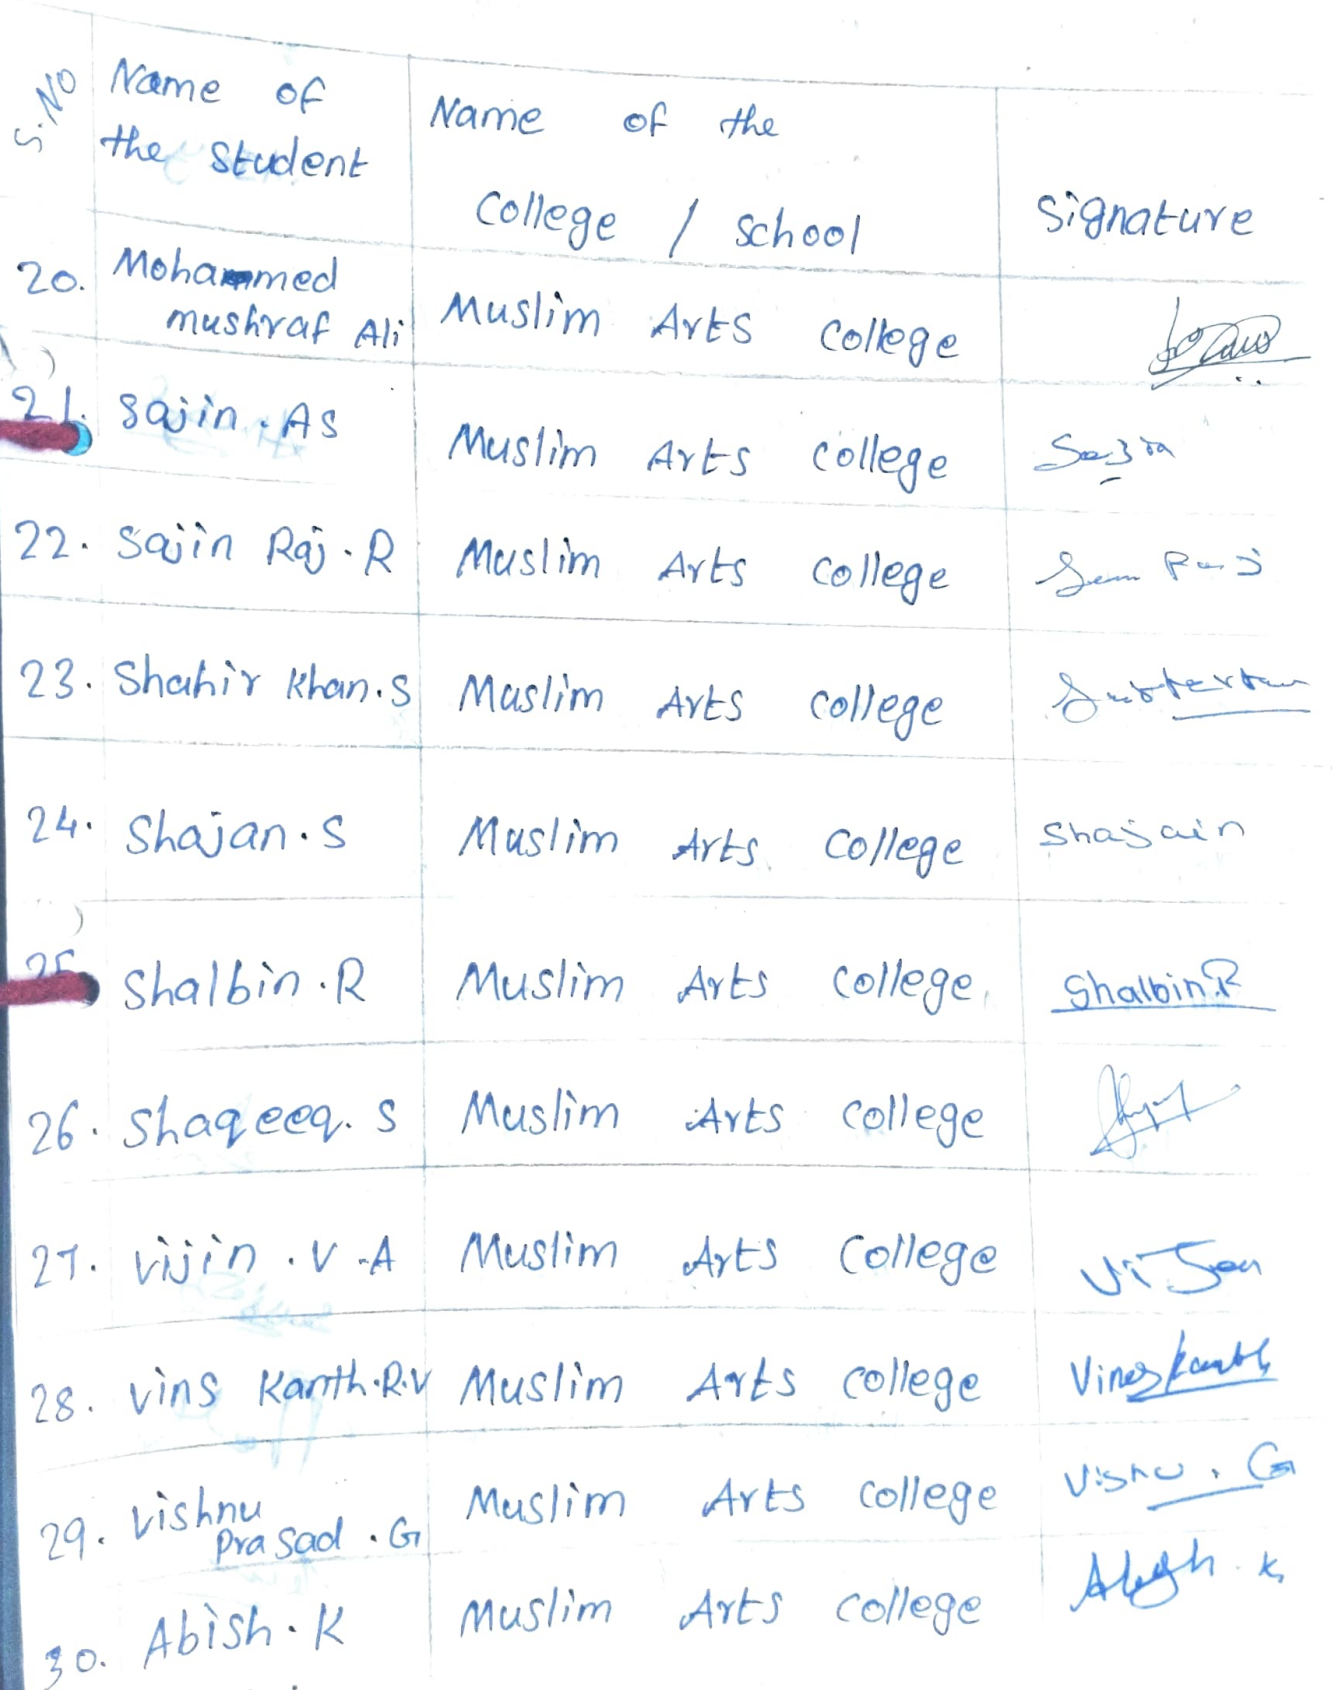 S.NO Name of the Student Name of the College / School Signature
20. Mohammed mushraf Ali Muslim Arts College
21. Sajin . AS Muslim Arts College
22. Sajin Raj . R Muslim Arts College
23. Shahir Khan . S Muslim Arts College
24. Shajan . S Muslim Arts College Shajain
25 Shalbin . R Muslim Arts College Shalbin R
26. Shaqeeq . S Muslim Arts College
27. Vijin . V . A Muslim Arts College
28. Vins Kanth . R . V Muslim Arts College
29. Vishnu Prasad . G Muslim Arts College Vishnu . G
30. Abish . K Muslim Arts College